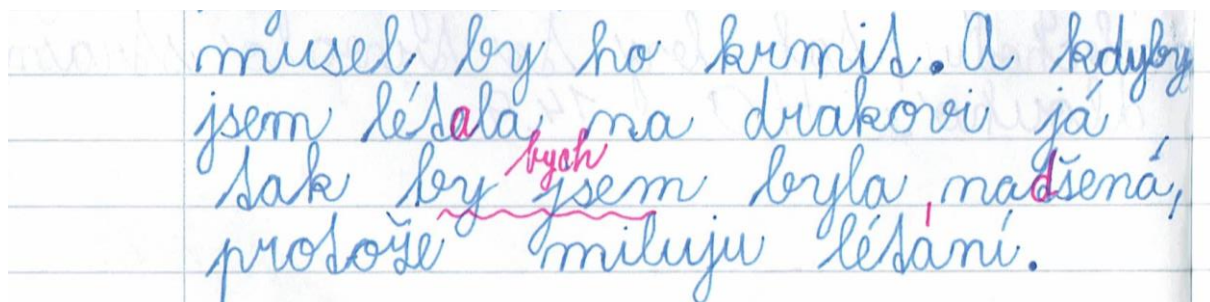 musel by ho krmit. A kdyby
jsem létala na drakovi já
bych
tak by jsem byla nadšená,
protože miluju létání.